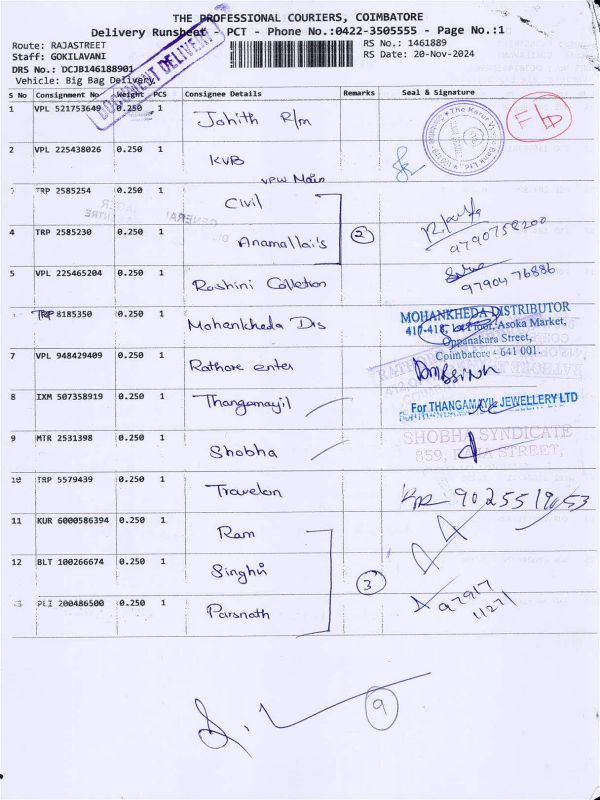 THE PROFESSIONAL COURIERS, COIMBATORE
Delivery Runsheet - PCT - Phone No.:0422-3505555 - Page No.:1
Route: RAJASTREET
RS No.: 1461889
Staff: GOKILAVANI
RS Date: 20-Nov-2024
DRS No.: DCJB146188901
Vehicle: Big Bag Delivery
DOCUMENT DELIVERY
S No Consignment No Weight PCS Consignee Details Remarks Seal & Signature
1 VPL 521753649 0.250 1 Johith R/m
The Karur Vysya Bank Ltd.
2 VPL 225438026 0.250 1 KVB
VPW Main
TRP 2585254 0.250 1 Civil
4 TRP 2585230 0.250 1 Anamallai's 2 9790758200
5 VPL 225465204 0.250 1 Roshini Colletion 97904 76886
TRP 8185350 0.250 1 Mohankheda Dis
MOHANKHEDA DISTRIBUTOR
Floor, Asoka Market,
Oppanakara Street,
Coimbatore - 641 001.
7 VPL 948429409 0.250 1 Rathore enter
8 IXM 507358919 0.250 1 Thangamayil For THANGAMAYIL JEWELLERY LTD
9 MTR 2531398 0.250 1 Shobha
SHOBHA SYNDICATE
859, RAJA STREET,
10 TRP 5579439 0.250 1 Travelon
11 KUR 6000586394 0.250 1 Ram
12 BLT 100266674 0.250 1 Singhvi 3
PLI 200486500 0.250 1 Parsnath 97917
11271
9